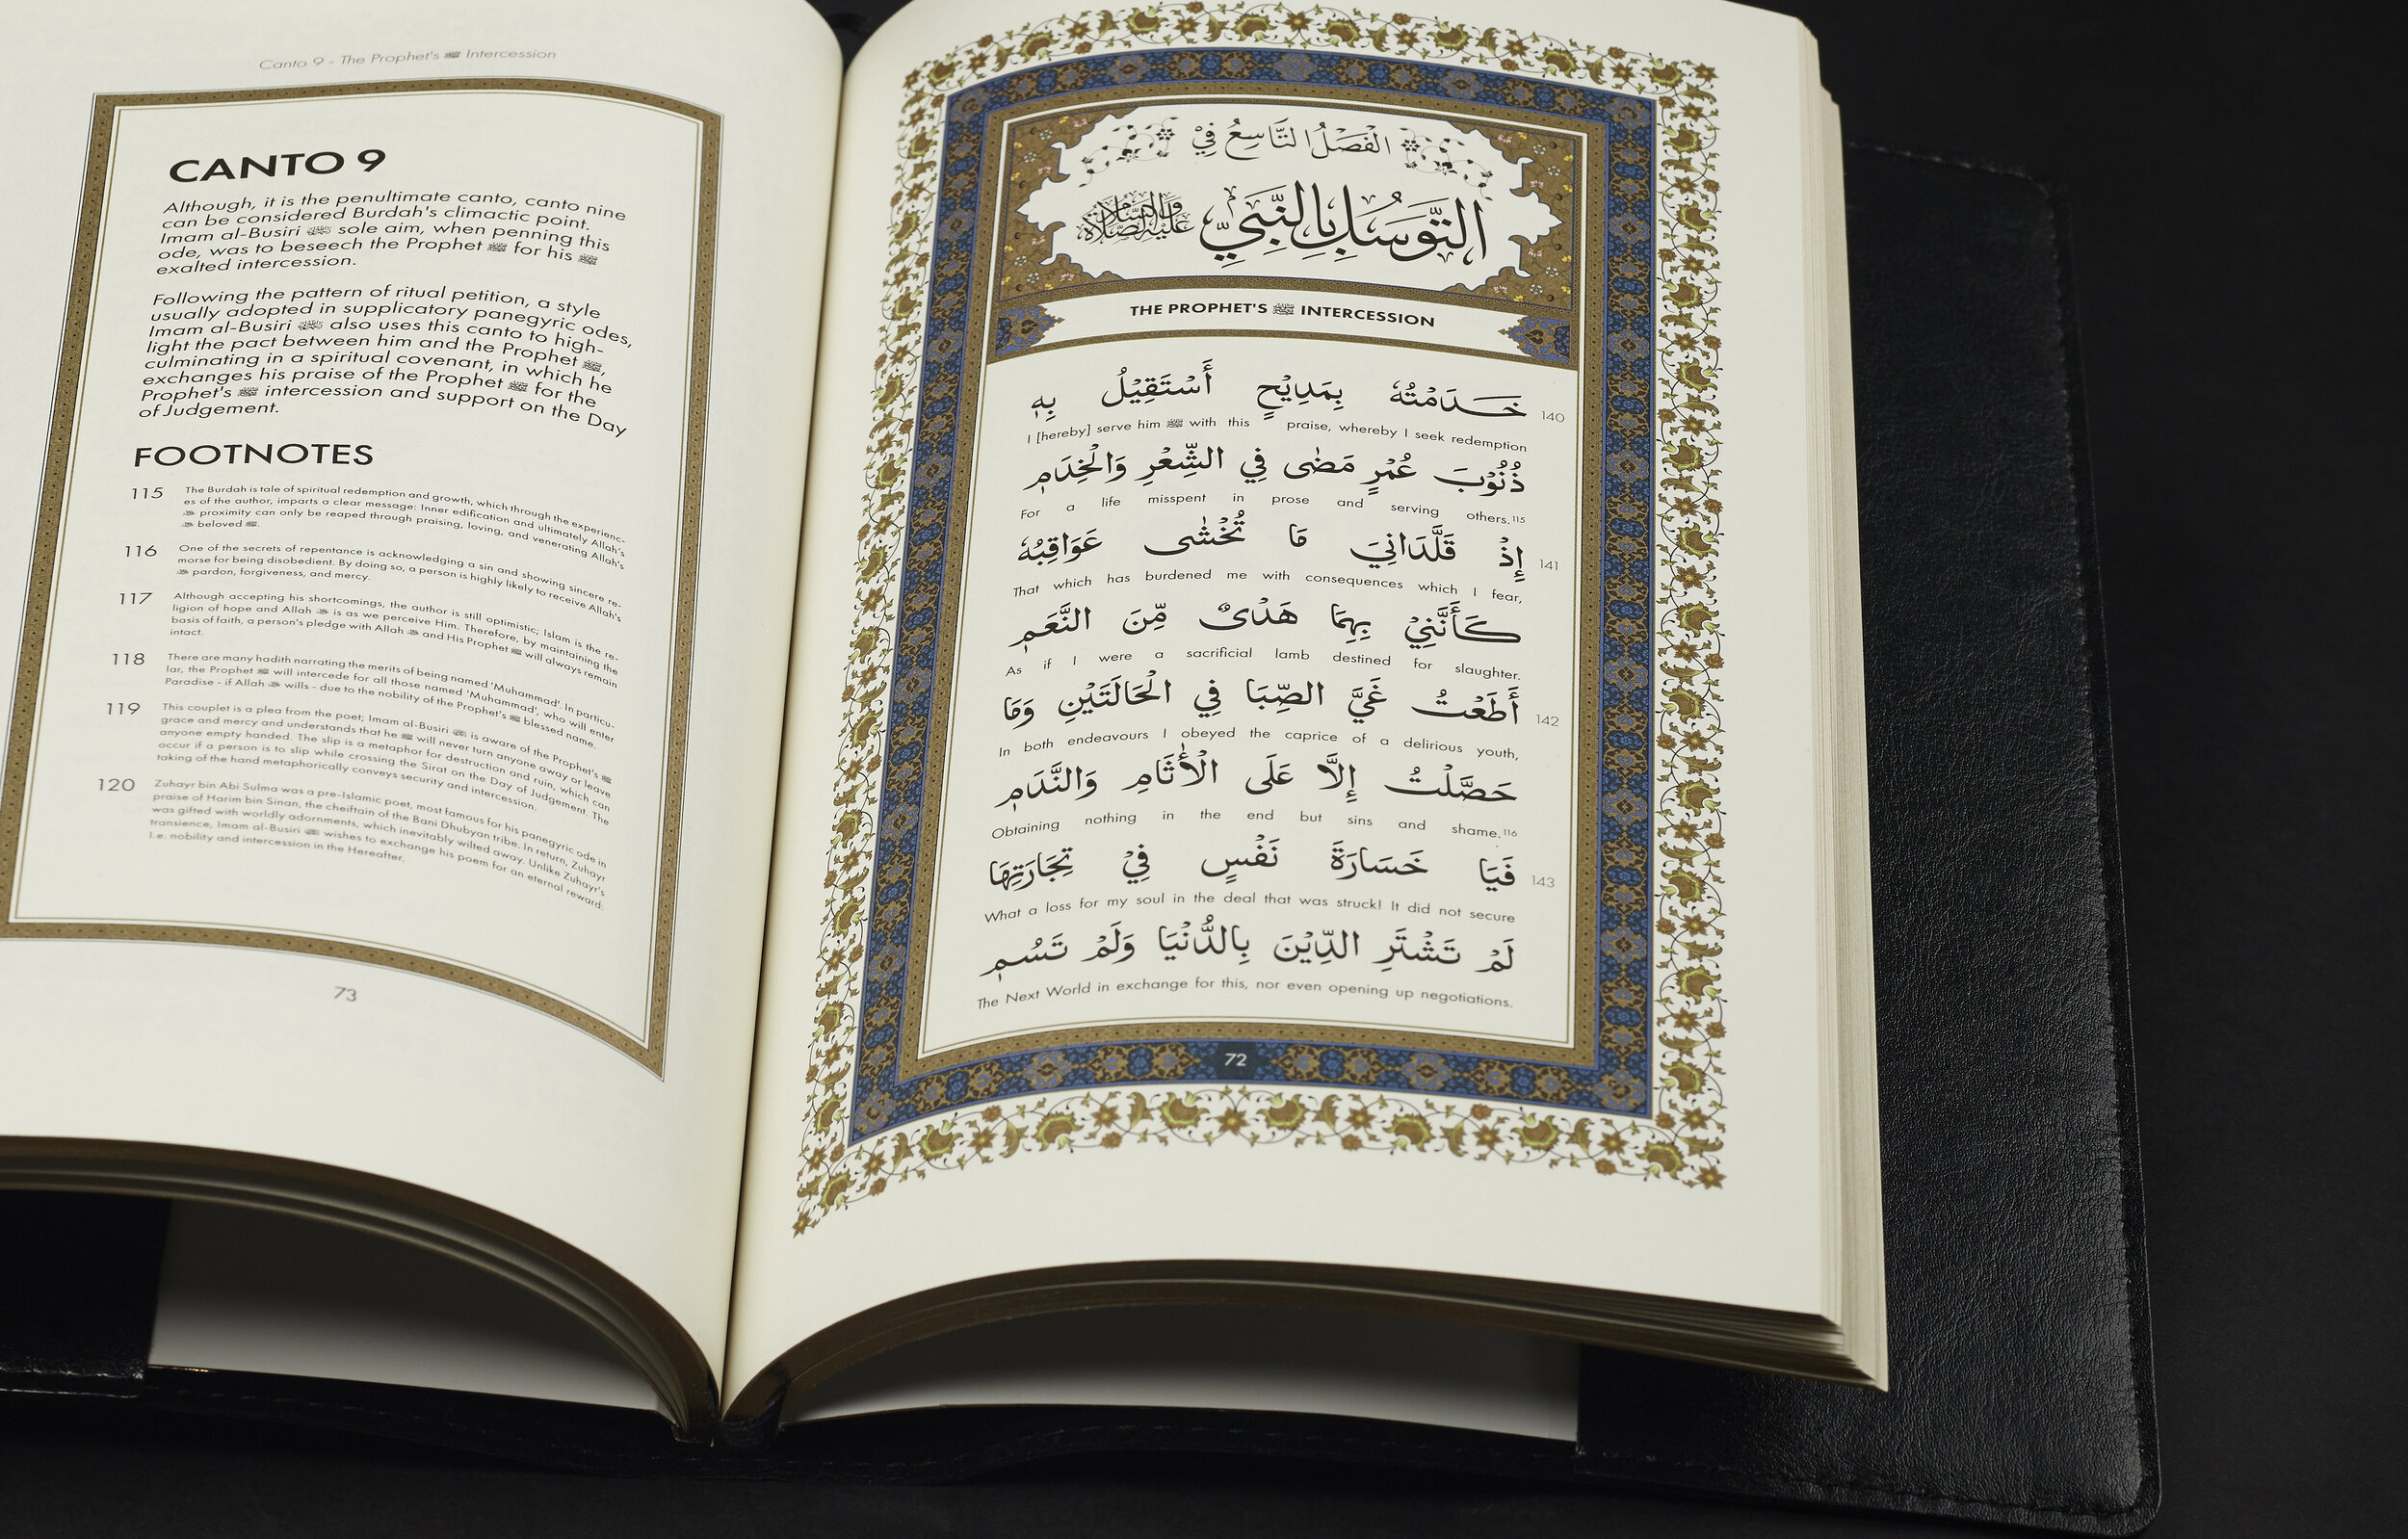 الفَصْلُ التَّاسِعُ فِيْ
التَّوَسُّلِ بِالنَّبِيِّ عَلَيْهِ الصَّلَاةُ وَالسَّلَامُ
THE PROPHET'S ﷺ INTERCESSION
خَدَمْتُهُ بِمَدِيْحٍ أَسْتَقِيْلُ بِهِ 140
I [hereby] serve him ﷺ with this praise, whereby I seek redemption
ذُنُوْبَ عُمْرٍ مَضٰى فِي الشِّعْرِ وَالْخِدَمِ
For a life misspent in prose and serving others.115
إِذْ قَلَّدَانِيَ مَا تُخْشٰى عَوَاقِبُهُ 141
That which has burdened me with consequences which I fear,
كَأَنَّنِيْ بِهِمَا هَدْىٌ مِّنَ النَّعَمِ
As if I were a sacrificial lamb destined for slaughter.
أَطَعْتُ غَيَّ الصِّبَا فِي الْحَالَتَيْنِ وَمَا 142
In both endeavours I obeyed the caprice of a delirious youth,
حَصَّلْتُ إِلَّا عَلَى الْأٰثَامِ وَالنَّدَمِ
Obtaining nothing in the end but sins and shame.116
فَيَا خَسَارَةَ نَفْسٍ فِيْ تِجَارَتِهَا 143
What a loss for my soul in the deal that was struck! It did not secure
لَمْ تَشْتَرِ الدِّيْنَ بِالدُّنْيَا وَلَمْ تَسُمِ
The Next World in exchange for this, nor even opening up negotiations.
72
Canto 9 - The Prophet's ﷺ Intercession
CANTO 9
Although, it is the penultimate canto, canto nine
can be considered Burdah's climactic point.
Imam al-Busiri sole aim, when penning this
ode, was to beseech the Prophet ﷺ for his ﷺ
exalted intercession.
Following the pattern of ritual petition, a style
usually adopted in supplicatory panegyric odes,
Imam al-Busiri also uses this canto to high-
light the pact between him and the Prophet ﷺ,
culminating in a spiritual covenant, in which he
exchanges his praise of the Prophet ﷺ for the
Prophet's ﷺ intercession and support on the Day
of Judgement.
FOOTNOTES
115 The Burdah is tale of spiritual redemption and growth, which through the experienc-
es of the author, imparts a clear message: Inner edification and ultimately Allah's
proximity can only be reaped through praising, loving, and venerating Allah's
beloved ﷺ.
116 One of the secrets of repentance is acknowledging a sin and showing sincere re-
morse for being disobedient. By doing so, a person is highly likely to receive Allah's
pardon, forgiveness, and mercy.
117 Although accepting his shortcomings, the author is still optimistic; Islam is the re-
ligion of hope and Allah is as we perceive Him. Therefore, by maintaining the
basis of faith, a person's pledge with Allah and His Prophet ﷺ will always remain
intact.
118 There are many hadith narrating the merits of being named 'Muhammad'. In particu-
lar, the Prophet ﷺ will intercede for all those named 'Muhammad', who will enter
Paradise - if Allah wills - due to the nobility of the Prophet's ﷺ blessed name.
119 This couplet is a plea from the poet; Imam al-Busiri is aware of the Prophet's ﷺ
grace and mercy and understands that he ﷺ will never turn anyone away or leave
anyone empty handed. The slip is a metaphor for destruction and ruin, which can
occur if a person is to slip while crossing the Sirat on the Day of Judgement. The
taking of the hand metaphorically conveys security and intercession.
120 Zuhayr bin Abi Sulma was a pre-Islamic poet, most famous for his panegyric ode in
praise of Harim bin Sinan, the cheiftain of the Bani Dhubyan tribe. In return, Zuhayr
was gifted with worldly adornments, which inevitably wilted away. Unlike Zuhayr's
transience, Imam al-Busiri wishes to exchange his poem for an eternal reward:
I.e. nobility and intercession in the Hereafter.
73